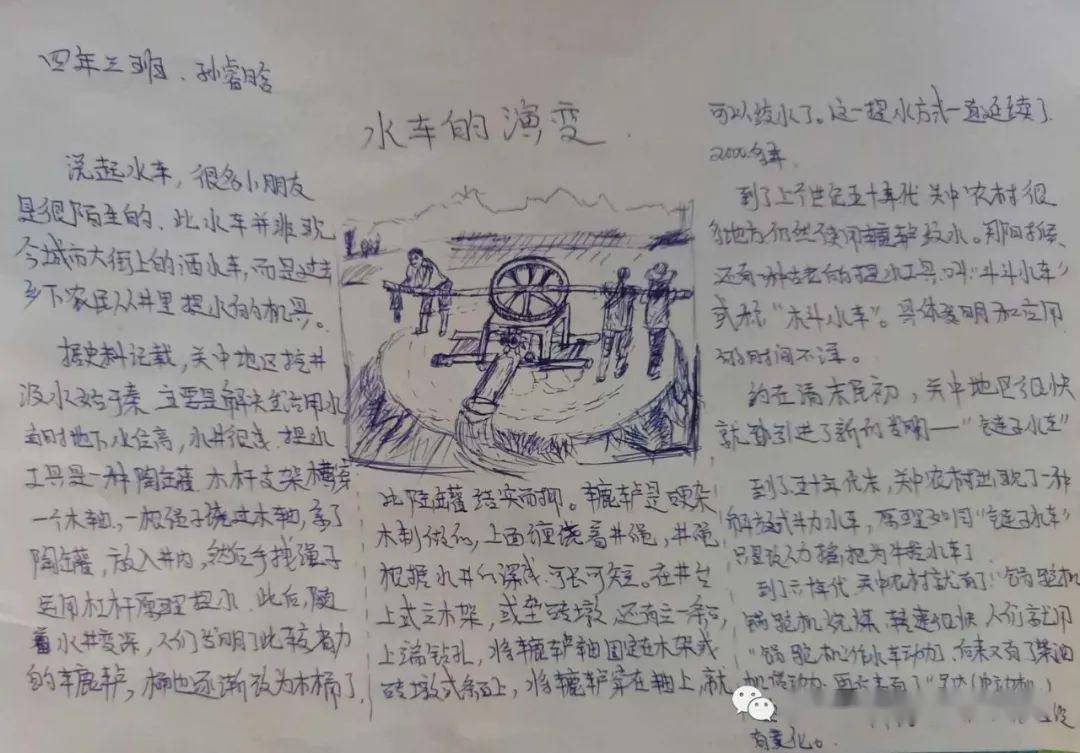 四年三班 孙睿晗
水车的演变
说起水车，很多小朋友
是很陌生的．此水车并非现
今城市大街上的洒水车，而是过去
乡下农民从井里提水的机具。
据史料记载，关中地区挖井
汲水始于秦 主要是解决生活用水
当时地下水位高，水井很浅．提水
工具是一种陶罐 木杆支架横穿
一个木轴，一根绳子绕过木轴，系了
陶罐，放入井内，然后手拽绳子
运用杠杆原理提水．此后，随
着水井变深，人们发明了比较省力
的辘轳，桶也逐渐改为木桶了．
比陶罐结实而耐。辘轳是硬杂
木制做的，上面缠绕着井绳，井绳
根据水井的深浅．可长可短。在井台
上或立木架，或垒砖墩，还有立一条石
上端钻孔，将辘轳轴固定在木架或
砖墩或条石上，将辘轳穿在轴上，就
可以绞水了。这一提水方式一直延续了
2000多年．
到了上个世纪五十年代 关中农村很
多地方仍然使用辘轳绞水。那时候、
还有一种古老的提水工具．叫“斗斗水车”
或称“木斗水车”。具体发明和应用
的时间不详。
约在清末民初，关中地区很快
就引进了新的发明—“链子水车”
到了五十年代末，关中农村出现了一种
解放式牛力水车，原理如同“链子水车”
只是改人力摇把为牛拉水车了
到六十年代 关中农村就有了“锅驼机
锅驼机烧煤 转速很快 人们就用
“锅驼机”作水车动力．后来又有了柴油
机做动力
有变化。